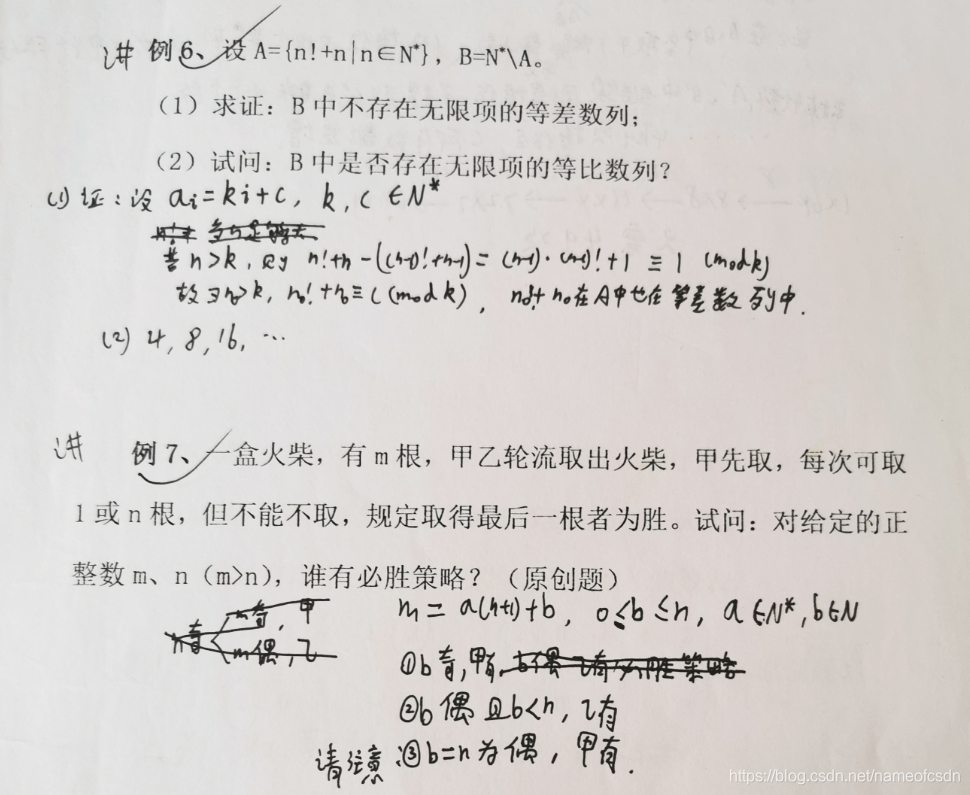 讲 例6、设A={n!+n|n∈N*}，B=N*\A。
（1）求证：B中不存在无限项的等差数列；
（2）试问：B中是否存在无限项的等比数列？
(1) 证：设 ai=ki+c, k, c∈N*
若 n>k, 则 n!+n-((n-1)!+n-1)=(n-1)·(n-1)!+1≡1 (mod k)
故∃n0>k, n0!+n0≡c(mod k), n0!+n0在A中也在等差数列中.
(2) 4, 8, 16, …
讲 例7、一盒火柴，有m根，甲乙轮流取出火柴，甲先取，每次可取
1或n根，但不能不取，规定取得最后一根者为胜。试问：对给定的正
整数m、n（m>n），谁有必胜策略？（原创题）
m=a(n+1)+b, 0≤b≤n, a∈N*, b∈N
n奇 m奇, 甲
m偶, 乙
①b奇, 甲有, b偶 乙有必胜策略
②b偶且b<n, 乙有
请注意: ③b=n为偶, 甲有.
https://blog.csdn.net/nameofcsdn